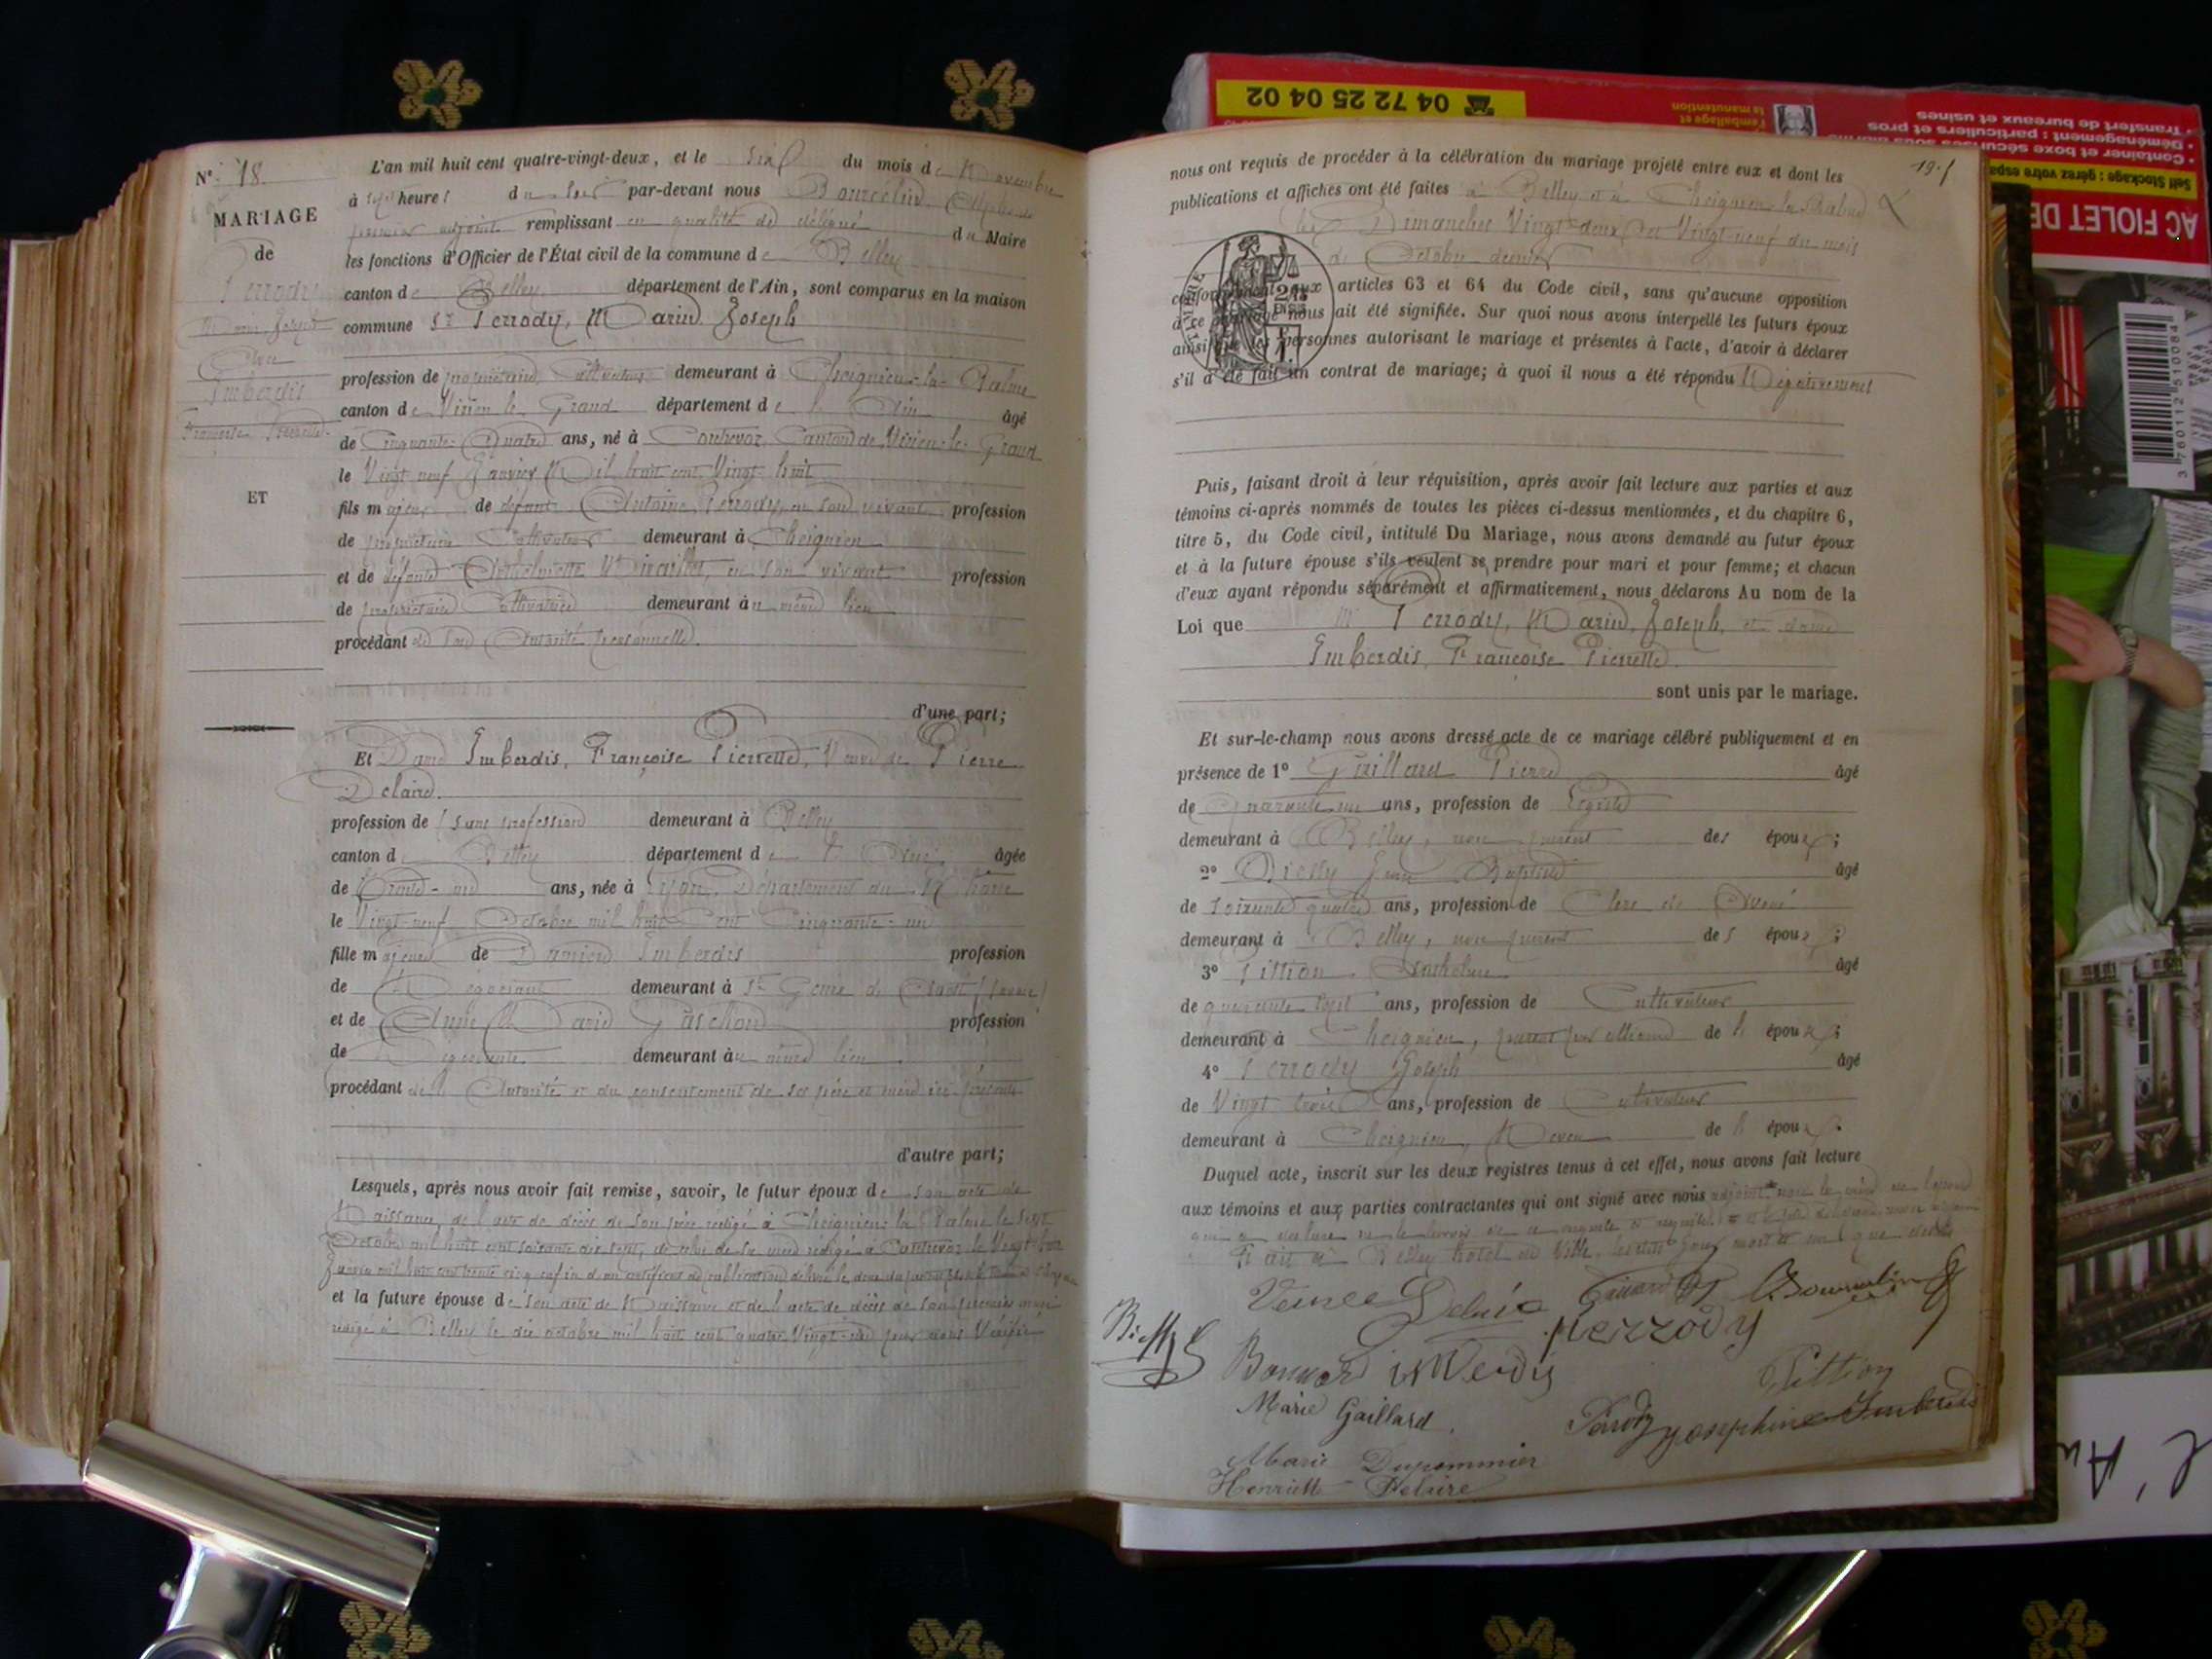 N° 18
MARIAGE
de
Perrody
Marie Joseph
Avec
Imberdis
Françoise Pierrette
ET
L'an mil huit cent quatre-vingt-deux, et le six du mois de Novembre
à sept heures du soir par-devant nous Bourcelin Alphonse
premier adjoint remplissant en qualité de délégué du Maire
les fonctions d'Officier de l'État civil de la commune de Belley
canton de Belley département de l'Ain, sont comparus en la maison
commune Sr Perrody, Marie Joseph
profession de propriétaire Cultivateur demeurant à Cheignieu-la-Balme
canton de Virieu le Grand département de l'Ain âgé
de Cinquante-Quatre ans, né à Contrevoz, Canton de Virieu-le-Grand
le Vingt neuf Janvier Mil huit cent Vingt huit
fils majeur de défunt Antoine Perrody, en son vivant profession
de propriétaire Cultivateur demeurant à Cheignieu
et de défunte Anthelmette en son vivant profession
de propriétaire Cultivatrice demeurant au même lieu
procédant de son Autorité personnelle.
d'une part;
Et Dame Imberdis, Françoise Pierrette, Veuve de Pierre
Delaire.
profession de (sans profession) demeurant à Belley
canton de Belley département de l'Ain âgée
de Trente-un ans, née à Lyon, Département du Rhône
le Vingt-neuf Octobre mil huit Cent Cinquante-un
fille majeure de Damien Imberdis profession
de Négociant demeurant à St Genix d'Aoste (Savoie)
et de Anne Marie Paschoud profession
de Négociante demeurant au même lieu
procédant de l'Autorité et du consentement de ses père et mère ici présents
d'autre part;
Lesquels, après nous avoir fait remise, savoir, le futur époux de son acte de
Naissance, de l'acte de décès de son père rédigé à Cheignieu la Balme le sept
Octobre mil huit cent soixante dix sept, de celui de sa mère rédigé à Contrevoz le Vingt
Janvier mil huit cent trente cinq enfin d'un certificat de publication délivré le
et la future épouse de son acte de Naissance et de l'acte de décès de son premier mari
rédigé à Belley le dix octobre mil huit cent quatre Vingt-un
19.
nous ont requis de procéder à la célébration du mariage projeté entre eux et dont les
publications et affiches ont été faites à Belley et à Cheignieu-la-Balme
les Dimanches Vingt-deux et Vingt-neuf du mois
d'Octobre dernier
conformément aux articles 63 et 64 du Code civil, sans qu'aucune opposition
à ce mariage nous ait été signifiée. Sur quoi nous avons interpellé les futurs époux
ainsi que les personnes autorisant le mariage et présentes à l'acte, d'avoir à déclarer
s'il a été fait un contrat de mariage; à quoi il nous a été répondu Négativement
Puis, faisant droit à leur réquisition, après avoir fait lecture aux parties et aux
témoins ci-après nommés de toutes les pièces ci-dessus mentionnées, et du chapitre 6,
titre 5, du Code civil, intitulé Du Mariage, nous avons demandé au futur époux
et à la future épouse s'ils veulent se prendre pour mari et pour femme; et chacun
d'eux ayant répondu séparément et affirmativement, nous déclarons Au nom de la
Loi que Mr Perrody, Marie, Joseph, et dame
Imberdis, Françoise Pierrette.
sont unis par le mariage.
Et sur-le-champ nous avons dressé acte de ce mariage célébré publiquement et en
présence de 1° Gaillard Pierre âgé
de Quarante un ans, profession de
demeurant à Belley, non parent des époux;
2° Bielly Jean Baptiste âgé
de soixante quatre ans, profession de Clerc de Avoué
demeurant à Belley, non parent des époux;
3° Pittion Anthelme âgé
de quarante sept ans, profession de Cultivateur
demeurant à Cheignieu, parent par alliance de l' époux;
4° Perrody Joseph âgé
de Vingt trois ans, profession de Cultivateur
demeurant à Cheignieu, Neveu de l' époux.
Duquel acte, inscrit sur les deux registres tenus à cet effet, nous avons fait lecture
aux témoins et aux parties contractantes qui ont signé avec nous adjoint
Fait à Belley hotel de Ville, les dits jour mois et an que dessus
Veuve Delaire Gaillard A. Bourcelin
Bielly
Perrody
Bonnard imberdis
Pittion
Marie Gaillard.
Perrody Josephine Imberdis
Marie Dupommier
Henriette Delaire
04 72 25 04 02
l'emballage et
la manutention
• Transfert de bureaux et usines
• Déménagement : particuliers et pros
• Container et boxe sécurisés
Self Stockage : gérez votre espa
AC FIOLET DE
3 760112 510084